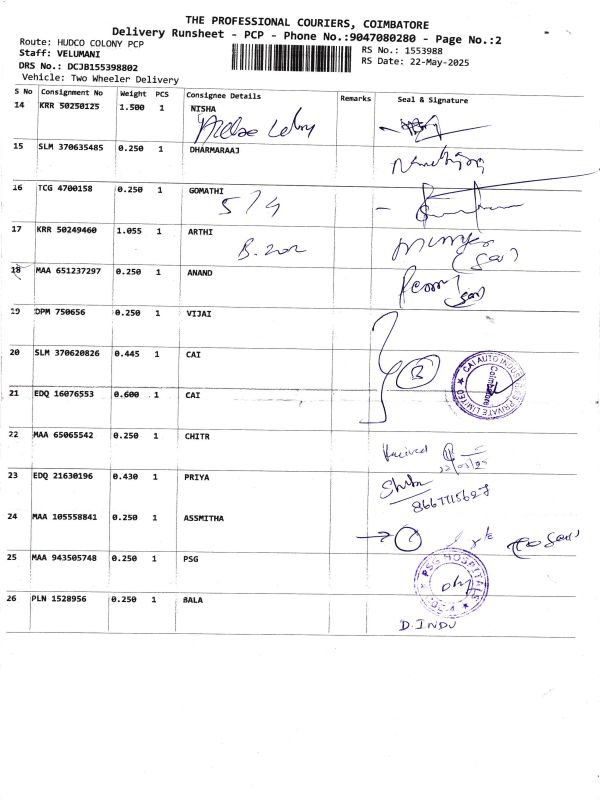 THE PROFESSIONAL COURIERS, COIMBATORE
Delivery Runsheet - PCP - Phone No.:9047080280 - Page No.:2
Route: HUDCO COLONY PCP
Staff: VELUMANI
DRS No.: DCJB155398802
Vehicle: Two Wheeler Delivery
RS No.: 1553988
RS Date: 22-May-2025
S No Consignment No Weight PCS Consignee Details Remarks Seal & Signature
14 KRR 50250125 1.500 1 NISHA
15 SLM 370635485 0.250 1 DHARMARAAJ
16 TCG 4700158 0.250 1 GOMATHI
5/4
17 KRR 50249460 1.055 1 ARTHI
18 MAA 651237297 0.250 1 ANAND
19 DPM 750656 0.250 1 VIJAI
20 SLM 370620826 0.445 1 CAI
CAI AUTO INDUSTRIES PRIVATE LIMITED
Coimbatore
21 EDQ 16076553 0.600 1 CAI
22 MAA 65065542 0.250 1 CHITR
Received
23 EDQ 21630196 0.430 1 PRIYA
24 MAA 105558841 0.250 1 ASSMITHA
25 MAA 943505748 0.250 1 PSG
PSG HOSPITALS
26 PLN 1528956 0.250 1 BALA
D. INDU